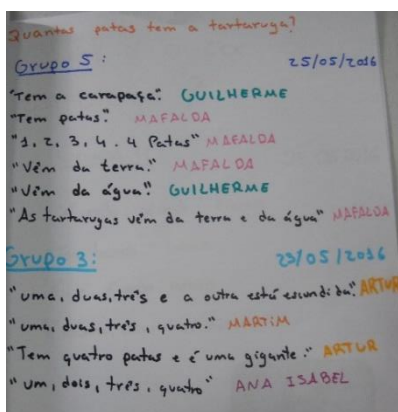 Quantas patas tem a tartaruga?
Grupo 5: 25/05/2016
"Tem a carapaça." GUILHERME
"Tem patas." MAFALDA
"1, 2, 3, 4. 4 Patas" MAFALDA
"Vêm da terra." MAFALDA
"Vêm da água." GUILHERME
"As tartarugas vêm da terra e da água" MAFALDA
Grupo 3: 23/05/2016
"uma, duas, três e a outra está escondida." ARTUR
"uma, duas, três, quatro." MARTIM
"Tem quatro patas e é uma gigante." ARTUR
"um, dois, três, quatro" ANA ISABEL